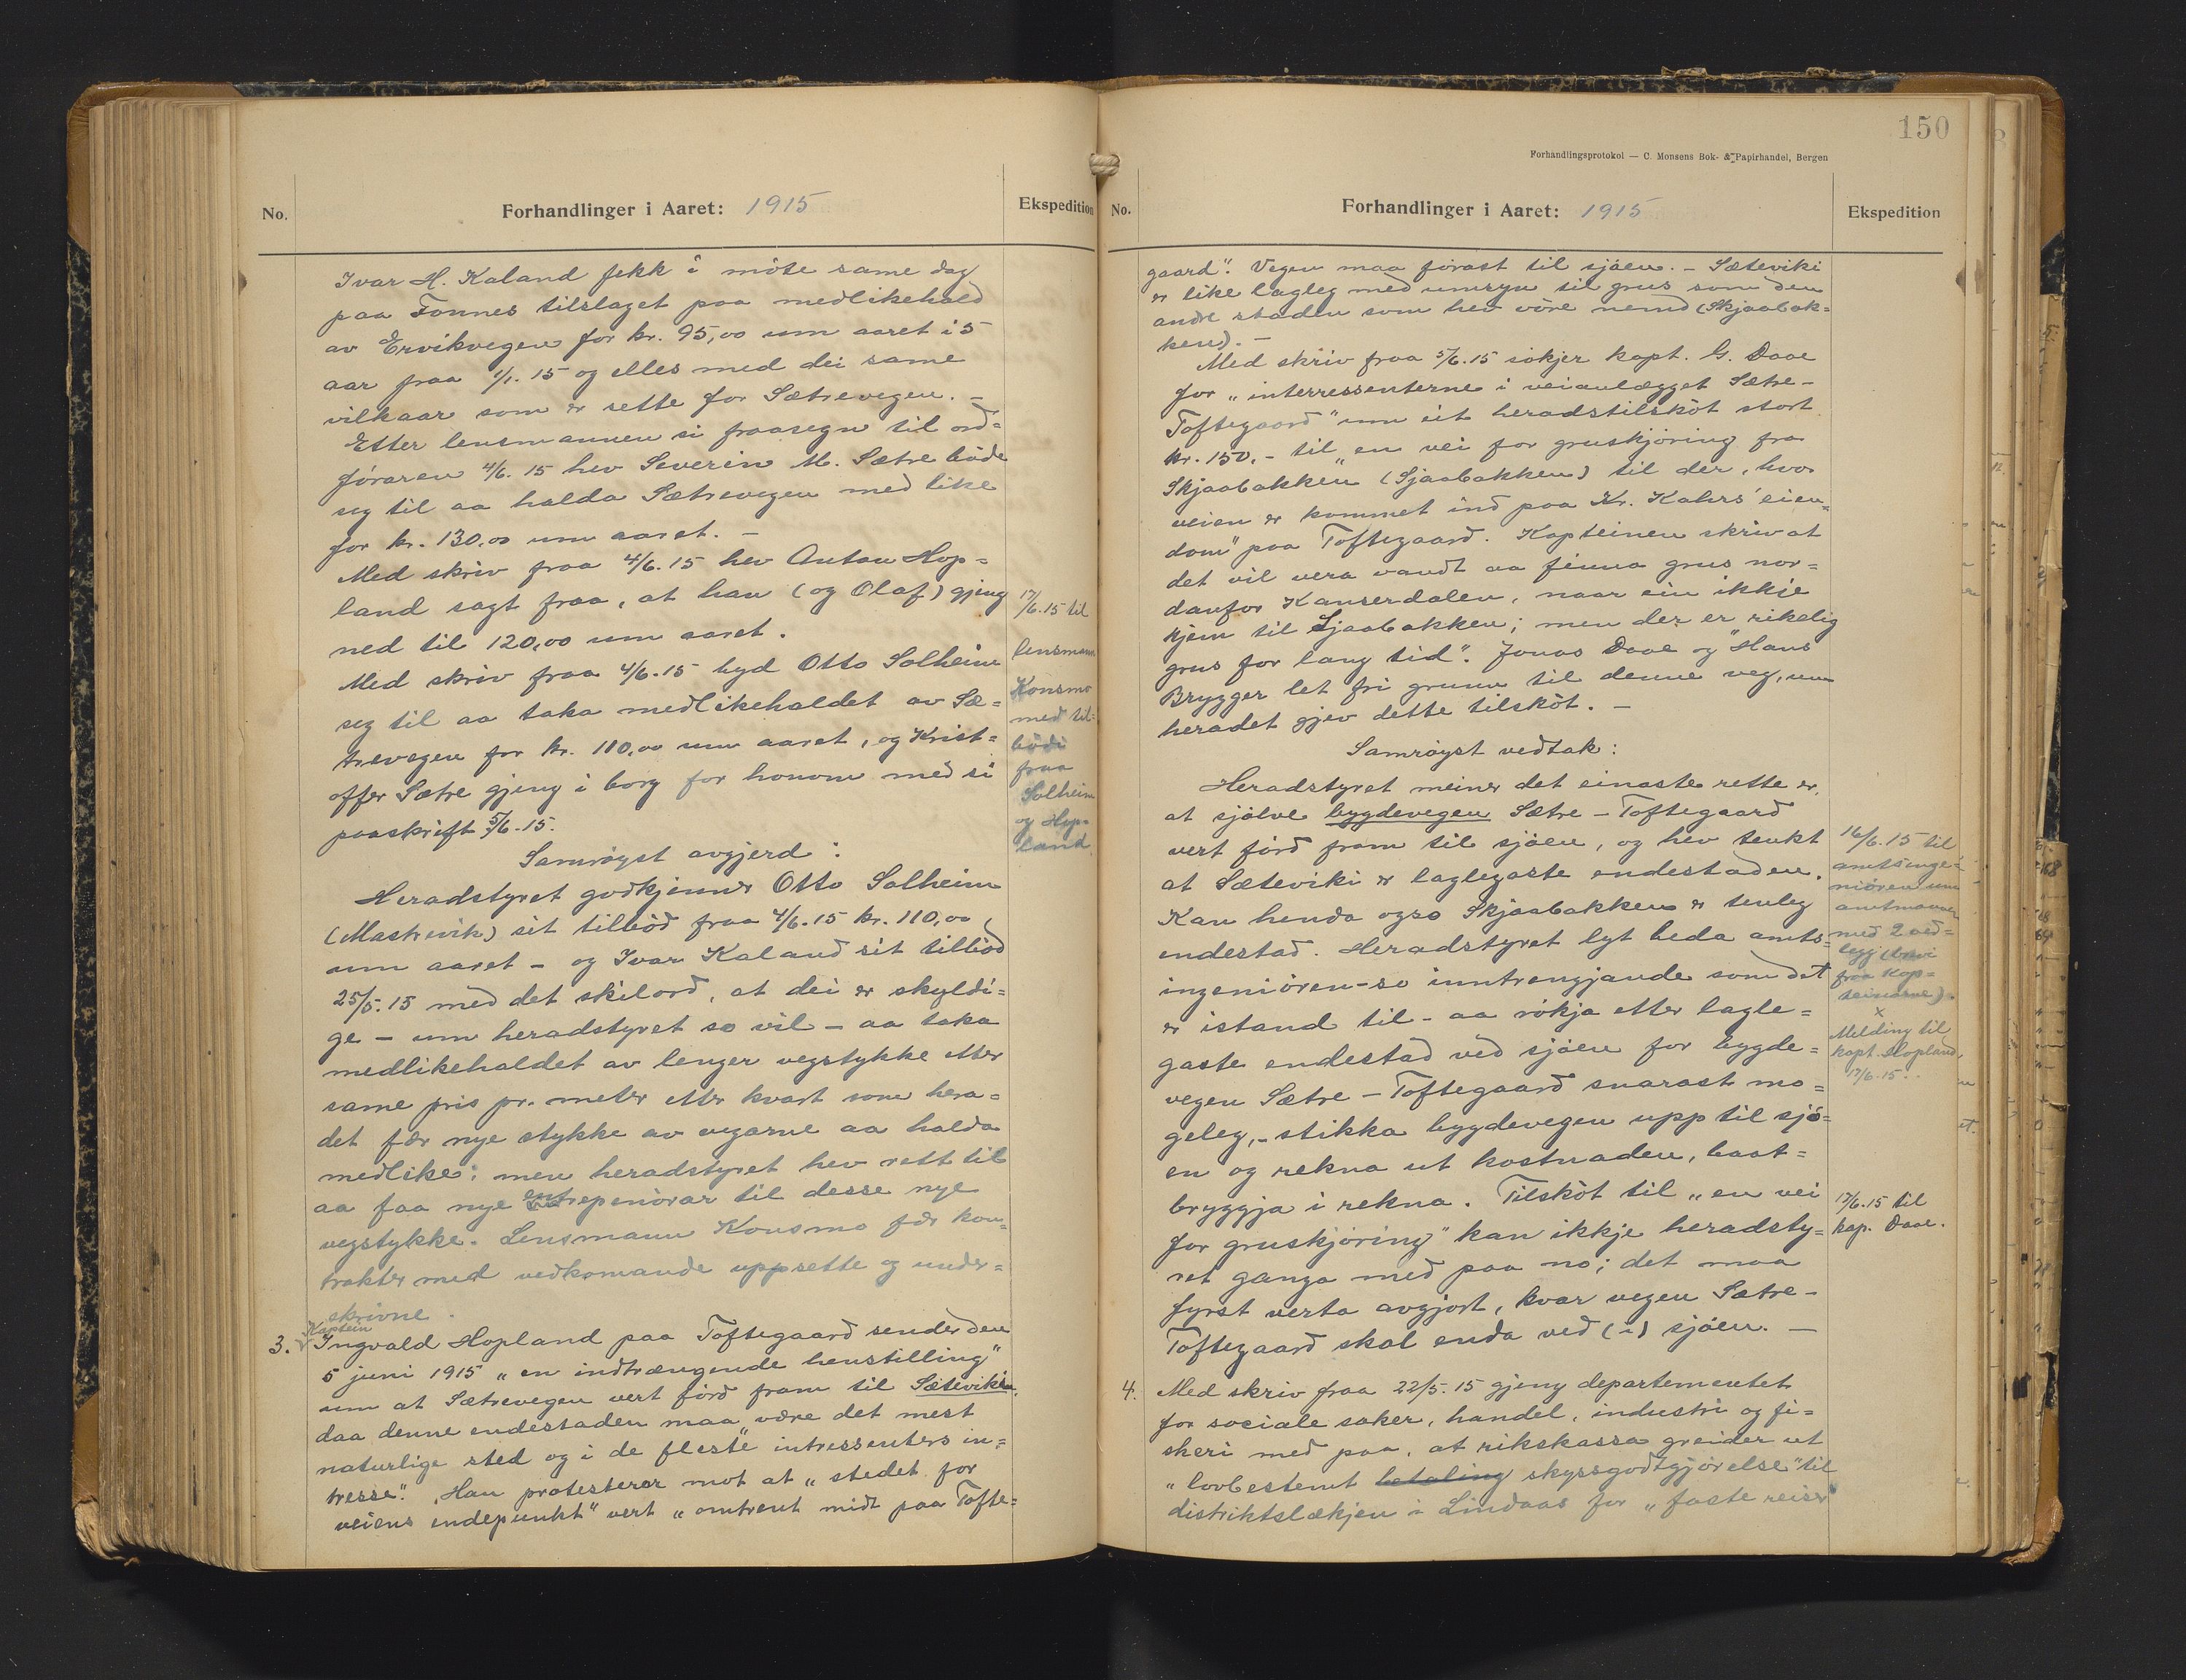 No.
Forhandlinger i Aaret: 1915
Ekspedition
Ivar H. Kaland fekk i møte same dag
paa Fonnes tilslaget paa medlikehald
av Ervikvegen for kr. 95,00 um aaret i 5
aar fraa 1/1. 15 og elles med dei same
vilkaar som er sette for Sætrevegen. –
Etter lensmannen si fraasegn til ord=
føraren 4/6. 15 hev Severin M. Sætre bode
seg til aa halda Sætrevegen med like
for kr. 130,00 um aaret. –
Med skriv fraa 4/6. 15 hev Anton Hop=
land sagt fraa, at han (og Olaf) gjeng
ned til 120,00 um aaret.
Med skriv fraa 4/6. 15 byd Otto Solheim
seg til aa taka medlikehaldet av Sæ=
trevegen for kr. 110,00 um aaret, og Krist=
offer Sætre gjeng i borg for honom med si
paaskrift 5/6. 15.
Samrøyst avgjerd:
Heradstyret godkjenner Otto Solheim
(Mastrevik) sit tilbod fraa 4/6. 15 kr. 110,00
um aaret – og Ivar Kaland sit tilbod
25/5. 15 med det skilord, at dei er skyldi=
ge – um heradstyret so vil – aa taka
medlikehaldet av lenger vegstykke etter
same pris pr. meter etter kvart som hera=
det fær nye stykke av vegarne aa halda
medlike; men heradstyret hev rett til
aa faa nye entrepenørar til desse nye
vegstykke. Lensmann Konsmo fær kon=
trakter med vedkomande uppsette og under=
skrivne.
17/6. 15 til
lensmann
Konsmo
med til=
bodi
fraa
Solheim
og Hop=
land.
3. Kaptein
Ingvald Hopland paa Toftegaard sender den
5 juni 1915 „en indtrængende henstilling"
um at Sætrevegen vert førd fram til Sæteviken,
daa denne endestaden maa „være det mest
naturlige sted og i de fleste intressenters in=
tresse". Han protesterer mot at „stedet for
veiens endepunkt" vert „omtrent midt paa Tofte=
150
Forhandlingsprotokol — C. Monsens Bok- & Papirhandel, Bergen
No.
Forhandlinger i Aaret: 1915
Ekspedition
gaard". Vegen maa førast til sjøen. – Sæteviki
er like lagleg med umsyn til grus som den
andre staden som hev vore nemd (Skjaabak=
ken). –
Med skriv fraa 5/6. 15 søkjer kapt. G. Daae
for „interressenterne i veianlægget Sætre –
Toftegaard" um eit heradstilskot stort
kr. 150,- til „en vei for gruskjøring fra
Skjaabakken (Sjaabakken) til der, hvor
veien er kommet ind paa Kr. Kahrs' eien=
dom" paa Toftegaard. Kapteinen skriv at
det vil vera vandt aa finna grus nor=
danfor Kanserdalen, naar ein ikkje
kjem til Sjaabakken; men der er rikelig
grus for lang tid". Jonas Daae og Hans
Brygger let fri grunn til denne veg, um
heradet gjev dette tilskot. –
Samrøyst vedtak:
Heradstyret meiner det einaste rette er,
at sjølve bygdevegen Sætre – Toftegaard
vert førd fram til sjøen, og hev tenkt
at Sæteviki er laglegaste endestaden.
Kan henda ogso Skjaabakken er tenleg
endestad. Heradstyret lyt beda amts=
ingeniøren – so inntrengjande som det
er istand til – aa røkja etter lagle=
gaste endestad ved sjøen for bygde=
vegen Sætre – Toftegaard snarast mo=
geleg, – stikka bygdevegen upp til sjø=
en og rekna ut kostnaden, baat=
bryggja i rekna. Tilskot til „en vei
for gruskjøring" kan ikkje heradsty=
ret ganga med paa no; det maa
fyrst verta avgjort, kvar vegen Sætre –
Toftegaard skal enda ved (i) sjøen. –
16/6. 15 til
amtsinge=
niøren um
amtmannen
med 2 ved=
legg (brevi
fraa kap=
teinarne).
x
Melding til
kapt. Hopland,
17/6. 15..
17/6. 15 til
kap. Daae.
4. Med skriv fraa 22/5. 15 gjeng departementet
for sociale saker, handel, industri og fi=
skeri med paa, at rikskassa greider ut
„lovbestemt betaling skyssgodtgjørelse" til
distriktslækjen i Lindaas for „faste reiser